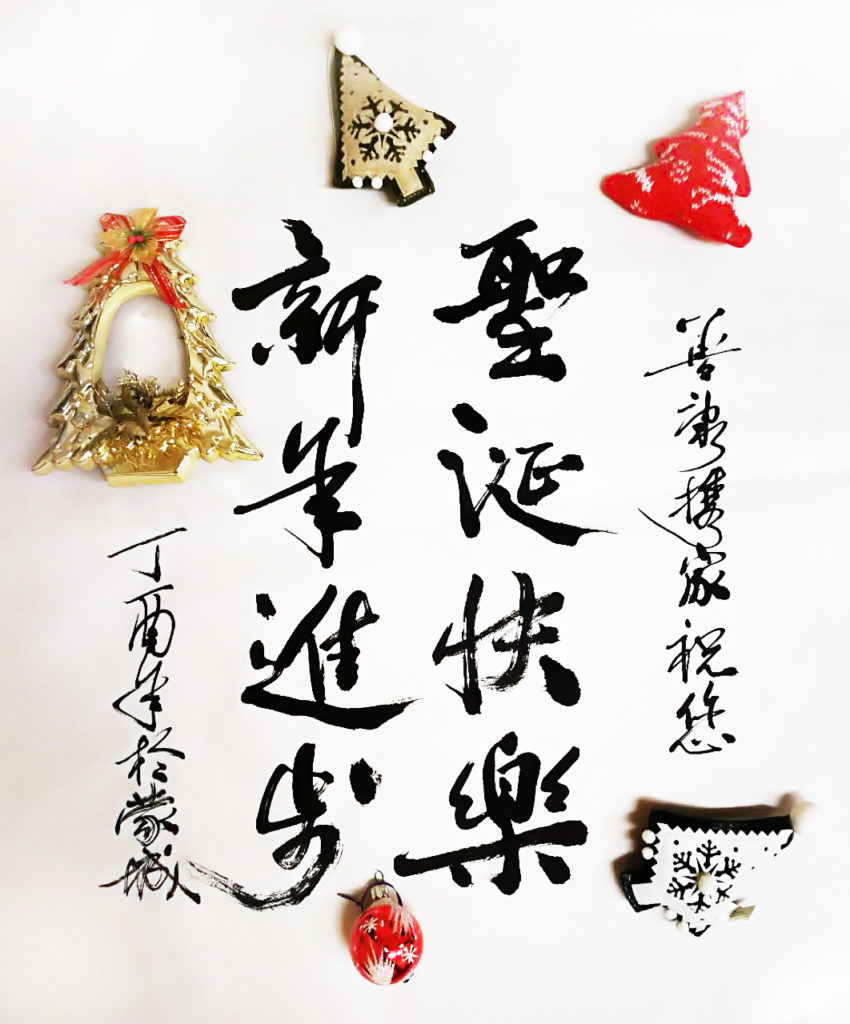 善　携家祝您
聖誕快樂
新年進步
丁酉年於蒙城